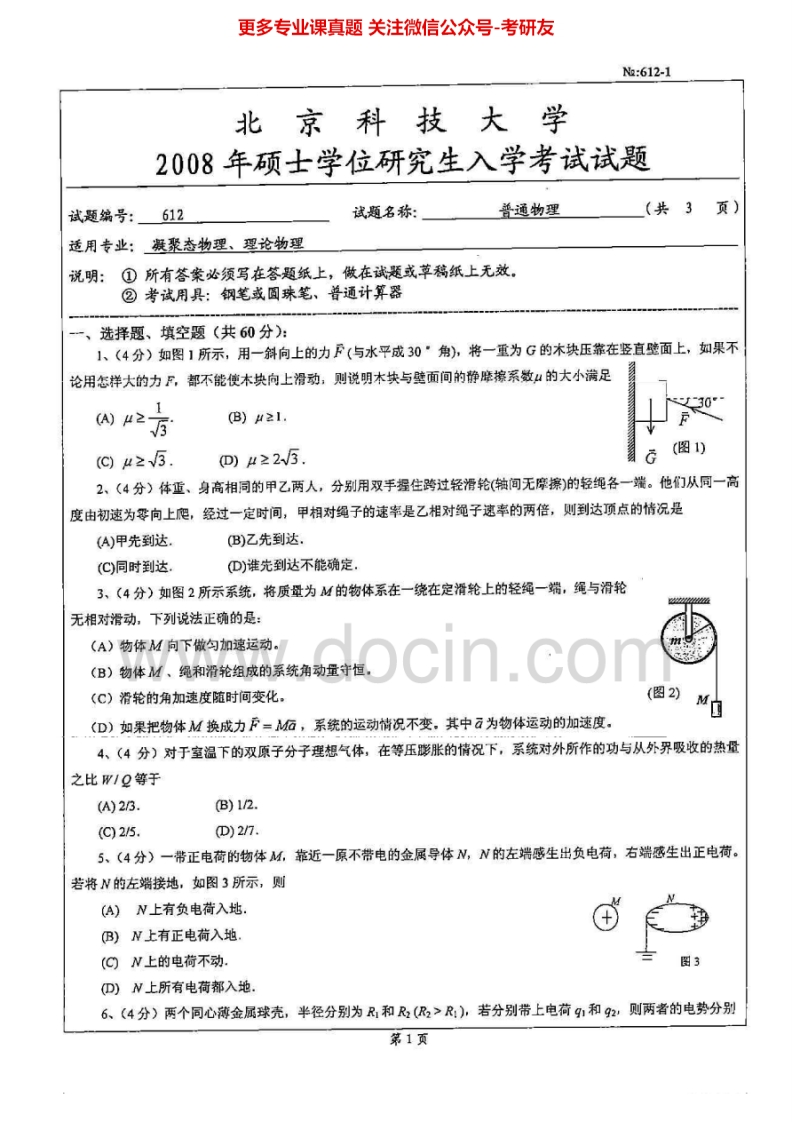 更多专业课真题 关注微信公众号-考研友
№:612-1
北京科技大学
2008年硕士学位研究生入学考试试题
试题编号: 612 试题名称: 普通物理 (共 3 页)
适用专业: 凝聚态物理、理论物理
说明: ① 所有答案必须写在答题纸上,做在试题或草稿纸上无效。
② 考试用具:钢笔或圆珠笔、普通计算器
一、选择题、填空题(共 60 分):
1、(4 分)如图 1 所示,用一斜向上的力 F⃗ (与水平成 30°角),将一重为 G 的木块压靠在竖直壁面上,如果不
论用怎样大的力 F,都不能使木块向上滑动,则说明木块与壁面间的静摩擦系数μ 的大小满足
(A) μ ≥ 1/√3. (B) μ ≥ 1.
(C) μ ≥ √3. (D) μ ≥ 2√3.
30°
F⃗
G⃗
(图 1)
2、(4 分)体重、身高相同的甲乙两人,分别用双手握住跨过轻滑轮(轴间无摩擦)的轻绳各一端。他们从同一高
度由初速为零向上爬,经过一定时间,甲相对绳子的速率是乙相对绳子速率的两倍,则到达顶点的情况是
(A)甲先到达. (B)乙先到达.
(C)同时到达. (D)谁先到达不能确定.
3、(4 分)如图 2 所示系统,将质量为 M 的物体系在一绕在定滑轮上的轻绳一端,绳与滑轮
无相对滑动,下列说法正确的是:
(A)物体 M 向下做匀加速运动。
(B)物体 M 、绳和滑轮组成的系统角动量守恒。
(C)滑轮的角加速度随时间变化。
(D)如果把物体 M 换成力 F⃗ = Ma⃗,系统的运动情况不变。其中 a⃗ 为物体运动的加速度。
m
(图 2)
M
www.docin.com
4、(4 分)对于室温下的双原子分子理想气体,在等压膨胀的情况下,系统对外所作的功与从外界吸收的热量
之比 W / Q 等于
(A) 2/3. (B) 1/2.
(C) 2/5. (D) 2/7.
5、(4 分)一带正电荷的物体 M,靠近一原不带电的金属导体 N,N 的左端感生出负电荷,右端感生出正电荷。
若将 N 的左端接地,如图 3 所示,则
(A) N 上有负电荷入地.
(B) N 上有正电荷入地.
(C) N 上的电荷不动.
(D) N 上所有电荷都入地.
M
N
图 3
6、(4 分)两个同心薄金属球壳,半径分别为 R₁ 和 R₂ (R₂ > R₁),若分别带上电荷 q₁ 和 q₂,则两者的电势分别
第 1 页